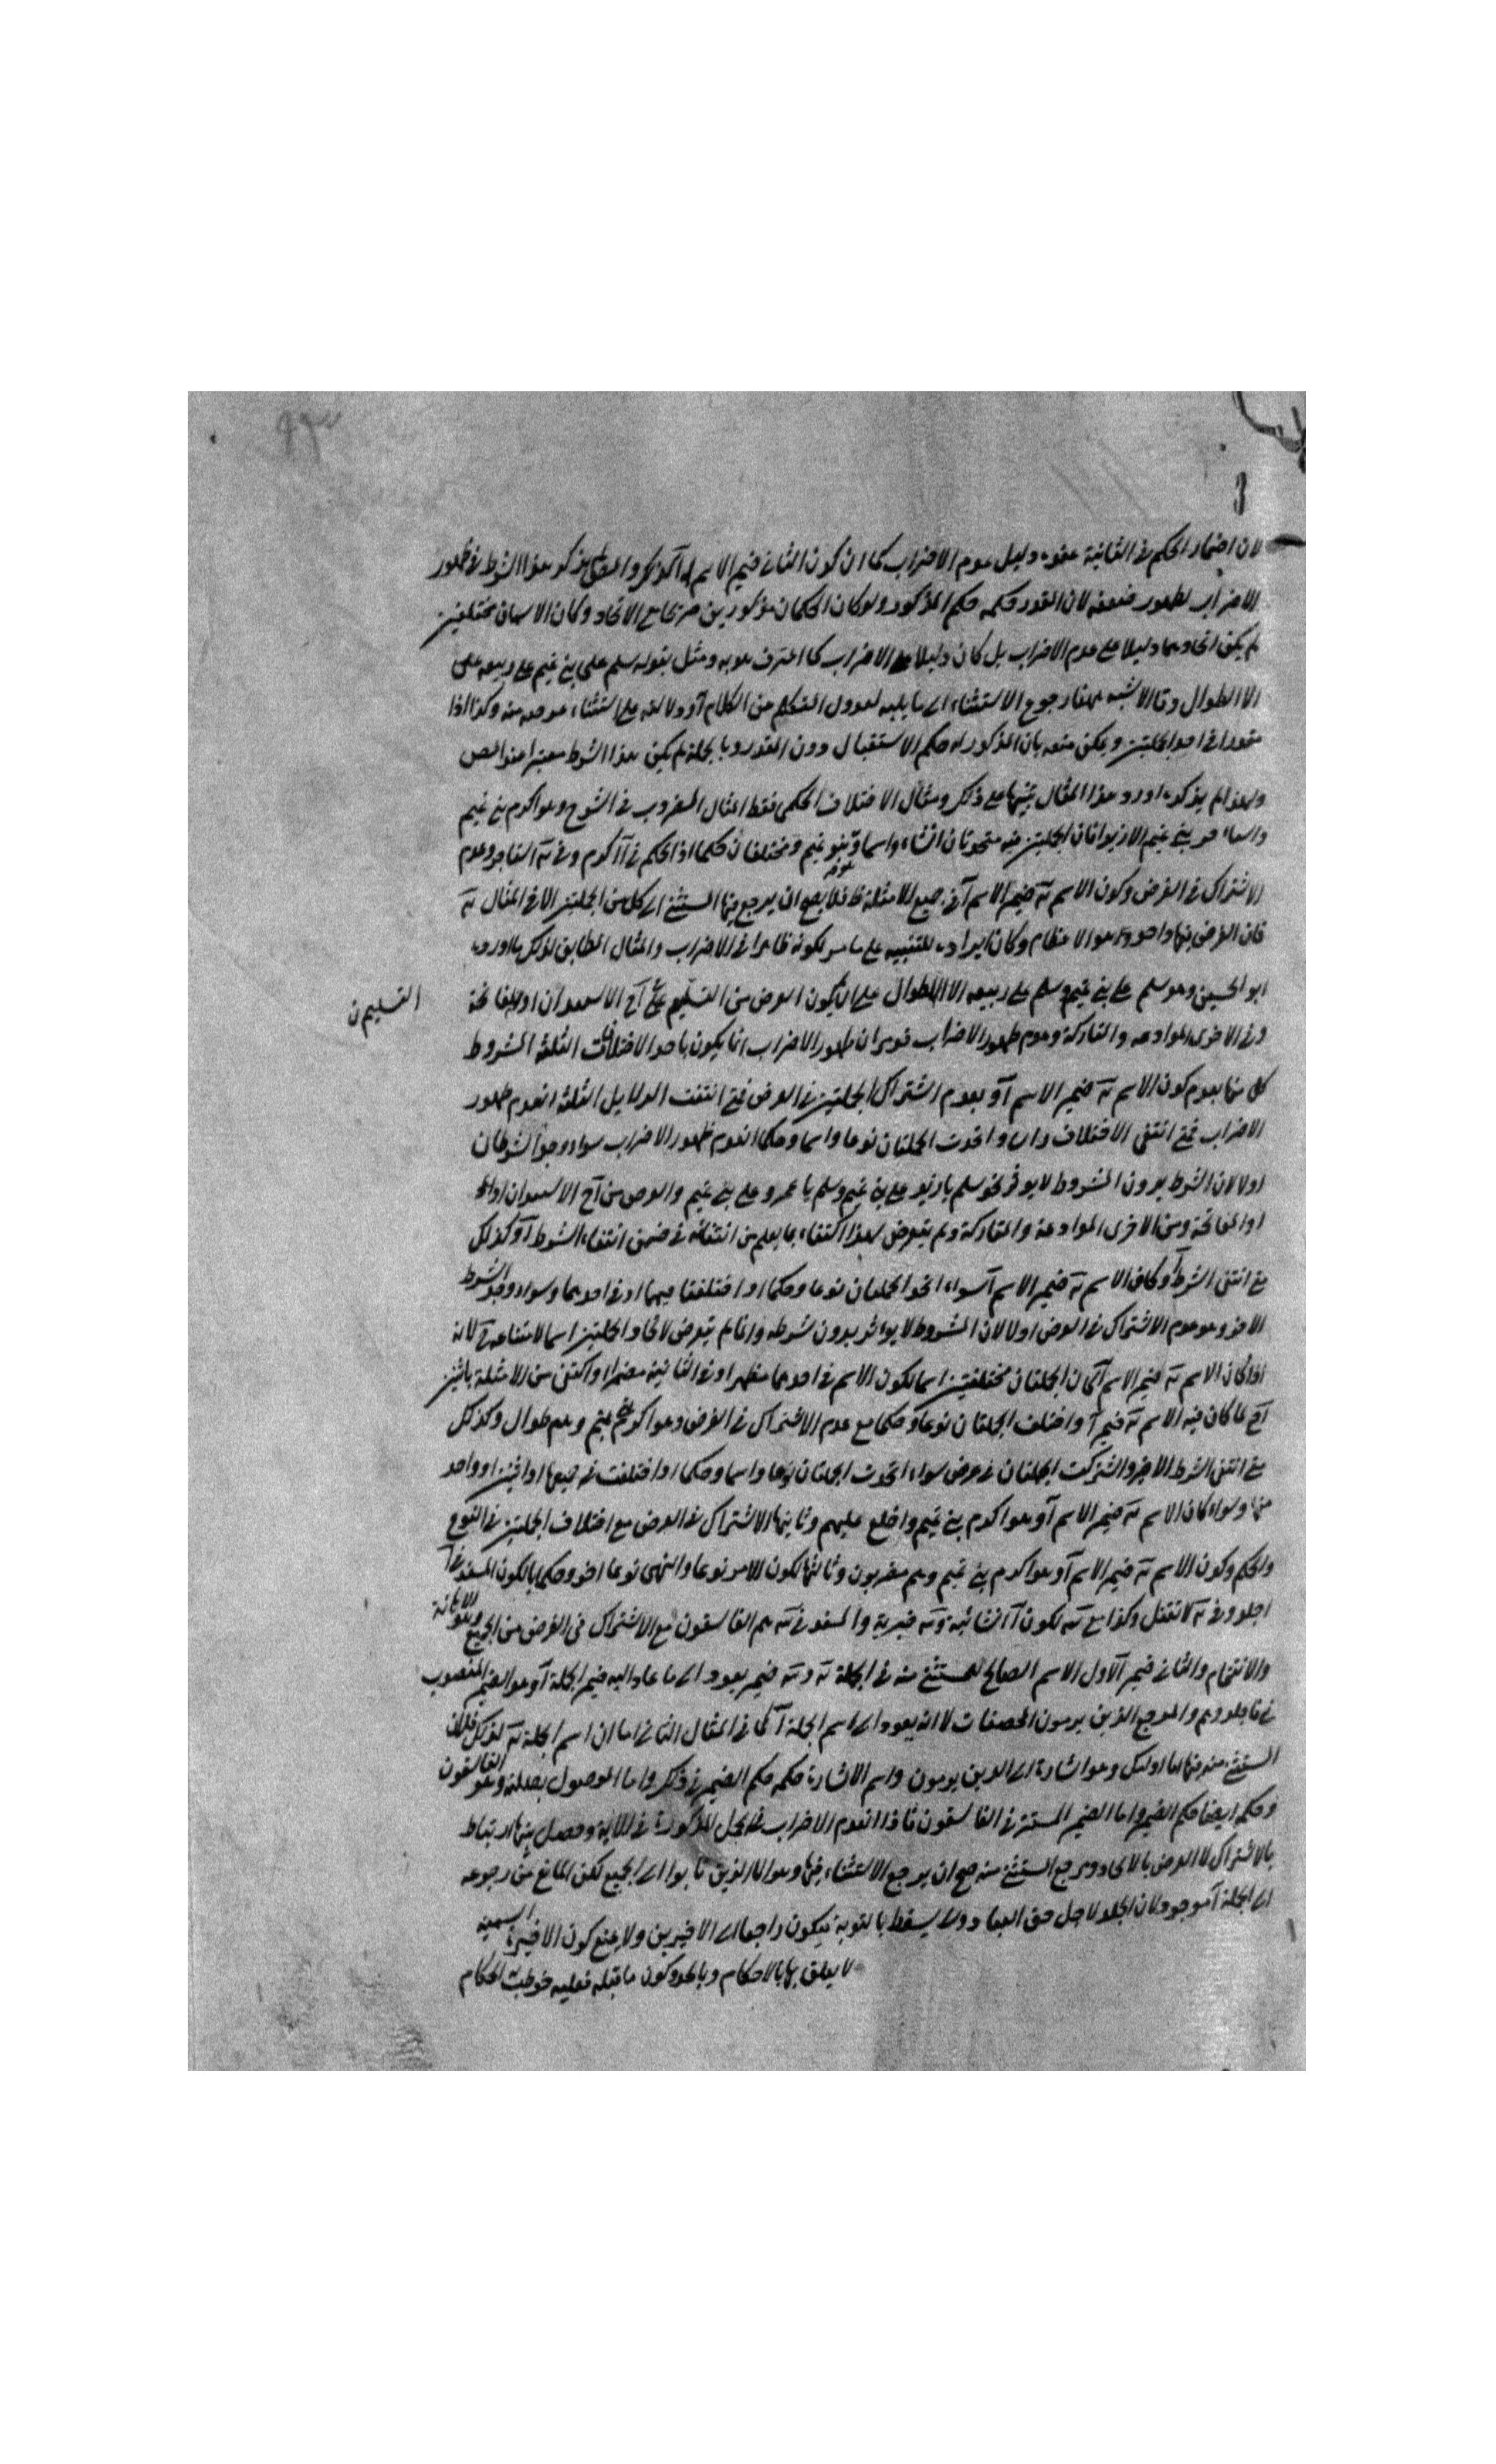 لان اضمار الحكم في الثانية عنده دليل عدم الاضراب كما ان كون الثاني ضمير الاسم آ كذلك والمص لم يذكر هذا الشرط في ظهور
الاضراب لظهور ضعفه لان المقدر حكمه حكم المذكور ولو كان الحكمان مذكورين صريحا مع الاتحاد وكان الاسمان مختلفين
لم يكن اتحادهما دليلا على عدم الاضراب بل كان دليلا على الاضراب كما اعترف هو به ومثل بقوله سلم على بني تميم على ربيعه على
الا الطوال وقال الاشبه ههنا رجوع الاستثناء الى ما يليه لعدول المتكلم من الكلام آ ودلالته على استثناء غرضه منه وكذا اذا
مقدرا في احد الجملتين ويمكن منعه بان المذكور له حكم الاستقبال دون المقدر وبالجملة لم يكن هذا الشرط معتبرا عند المص
ولهذا لم يذكره اورد هذا المثال تنبيها على ذلك ومثال الاختلاف الحكمي فقط المثال المضروب في الشرح وهو اكرم بني تميم
واستأجر بني تميم الا زيدا فان الجملتين فيه متحدتان انشاء واسما وهو بنو تميم ومختلفان حكما اذ الحكم في آ اكرم وفي ته استأجر وعدم
الاشتراك في الغرض وكون الاسم ته ضمير الاسم آ في جميع الامثلة ظ فلا يصح ان يرجع فيها المستثنى الى كل من الجملتين الا في المثال ته
فان الغرض فيها واحد وهو الاعظام وكان ايراده للتنبيه على ما مر لكونه ظاهرا في الاضراب والمثال المطابق لذلك ما اورده
ابو الحسين وهو سلم على بني تميم وسلم على ربيعه الا الطوال على ان يكون الغرض من التسليم على آ ح الاستعداد او المفاتحة
التسليم ن
وفي الاخرى الموادعه والمتاركة وعدم ظهور الاضراب قد مر ان ظهور الاضراب انما يكون باحد الاختلافات الثلثة المشروط
كل منها بعدم كون الاسم ته ضمير الاسم آ وبعدم اشتراك الجملتين في الغرض فمتى انتفت الدلايل الثلثة انعدم ظهور
الاضراب فمتى انتفى الاختلاف راسا واتحدت الجملتان نوعا واسما وحكما انعدم ظهور الاضراب سواء وجد الشرطان
اولا لان الشرط بدون المشروط لا يوثر نحو سلم يا زيد على بني تميم وسلم يا عمرو على بني تميم والغرض من آ ح الاستعداد
او المفاتحة ومن الاخرى الموادعة والمتاركة ولم يتعرض لهذا اكتفاء بما يعلم من انتفائه في ضمن انتفاء الشرط آ وكذلك
متى انتفى الشرط آ وكان الاسم ته ضمير الاسم آ سواء اتحد الجملتان نوعا وحكما او اختلفتا فيهما او في احدهما وسواء وجد الشرط
الاخر وهو عدم الاشتراك في الغرض اولا لان المشروط لا يوثر بدون شرطه وانما لم يتعرض لاتحاد الجملتين اسما لامتناعه ح لانه
اذا كان الاسم ته ضمير الاسم آ كان الجملتان مختلفتين اسما لكون الاسم في احدهما مظهرا وفي الثانية مضمرا واكتفى من الامثلة باثنين
آ ح ما كان فيه الاسم ته ضمير آ واختلف الجملتان نوعا وحكما مع عدم الاشتراك في الغرض وهو اكرم بني تميم وهم طوال وكذلك
متى انتفى الشرط الاخير واشتركت الجملتان في غرض سواء اتحدت الجملتان نوعا واسما وحكما او اختلفت في جميعها او اثنين او واحد
منها وسواء كان الاسم ته ضمير الاسم آ وهو اكرم بني تميم واخلع عليهم وثانيها الاشتراك في الغرض مع اختلاف الجملتين في النوع
والحكم وكون الاسم ته ضمير الاسم آ وهو اكرم بني تميم وهم مضربون وثالثها لكون الامر نوعا والنهي نوعا اخر وحكما بالكون المسند في آ
اجلد وفي ته لا تقبل وكذا مع ته لكون آ انشائية وته خبرية والمسند في ته هم الفاسقون مع الاشتراك في الغرض من الجميع وهو الاهانة
والانتقام والثاني ضمير الاول الاسم الصالح للمستثنى منه في الجملة ته وته ضمير يعود الى ما عاد اليه ضمير الجملة آ وهو الضمير المنصوب
في فاجلدوهم والمرجع الذين يرمون المحصنات لا انه يعود الى اسم الجملة آ كما في المثال الثاني اما ان اسم الجملة ته كذلك فلان
المستثنى منه فيها اما اولئك وهو اشارة الى الذين يرمون واسم الاشارة حكمه حكم الضمير في ذلك واما الموصول بصلته وهو الفاسقون
وحكمه ايضا حكم الضمير واما الضمير المستتر في الفاسقون فاذا انعدم الاضراب في الجمل المذكورة في الاية وحصل بينها ارتباط
بالاشتراك لا الغرض بالاتحاد ومرجع المستثنى منه صح ان يرجع الاستثناء فيها وهو الا الذين تابوا الى الجميع لكن المانع من رجوعه
الى الجملة آ موجود لان الجلد لاجل حق العباد ولا يسقط بالتوبة فيكون راجعا الى الاخيرين ولا يمنع كون الاخيرة اسمية
لا يعلق بها بالاحكام وبالحد وكون ما قبله فعليه خوطب الحكام